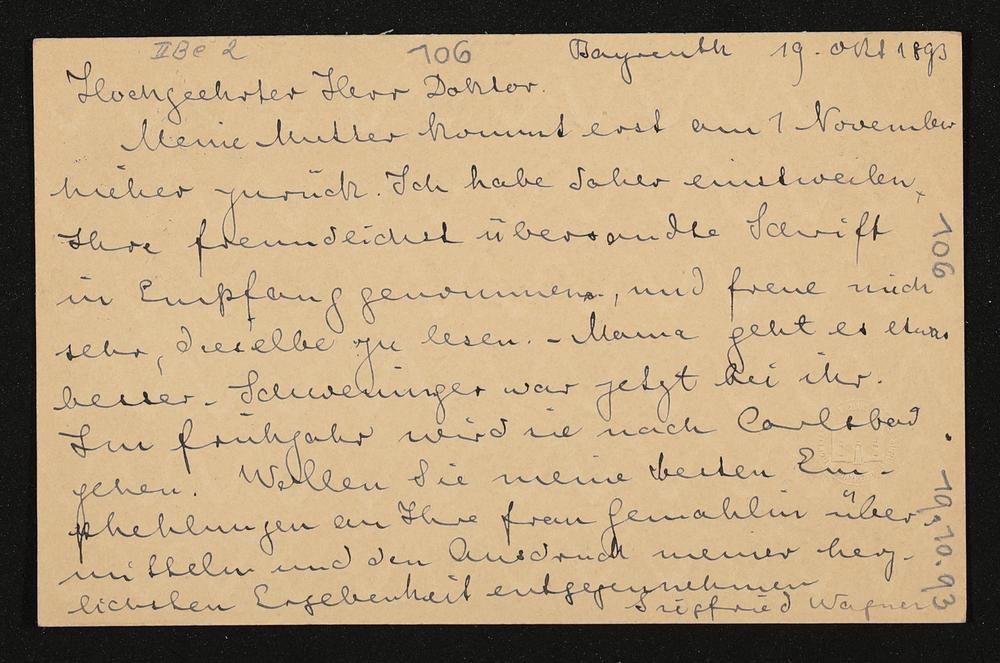 IIBe 2
106
Bayreuth 19. Okt 1893
Hochgeehrter Herr Doktor.
Meine Mutter kommt erst am 1 November
hieher zurück. Ich habe daher einstweilen,
Ihre freundlichst übersandte Schrift
in Empfang genommen, und freue mich
sehr, dieselbe zu lesen. - Mama geht es etwas
besser - Schweninger war jetzt bei ihr.
Im Frühjahr wird sie nach Carlsbad
gehen. Wollen Sie meine besten Em-
pfehlungen an Ihre Frau Gemahlin über-
mitteln und den Ausdruck meiner herz-
lichsten Ergebenheit entgegennehmen
Siegfried Wagner
106
19.10.93